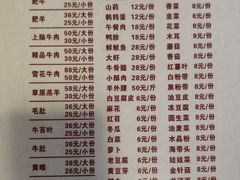 肥牛 25元/小份
肥羊 50元/大份
25元/小份
上脑牛肉 50元/大份
30元/小份
精品牛肉 50元/大份
30元/小份
雪花牛肉 50元/大份
30元/小份
草原羔羊 58元/大份
30元/小份
毛肚 36元/大份
26元/小份
牛百叶 38元/大份
26元/小份
牛肚 38元/大份
26元/小份
黄喉 36元/大份
26元/小份
山药 12元/份
鹌鹑蛋 12元/份
午餐肉 18元/份
鸭胗 18元/份
鲜鱿鱼 28元/份
大虾 28元/份
牛骨髓 28元/份
小酥肉 28元/份
羊外腰 50元/斤
白豆腐 6元/份
麻花 6元/份
红苕 6元/份
冬瓜 6元/份
白菜 6元/份
萝卜 6元/份
老豆腐 6元/份
黄豆芽 6元/份
金瓜 6元/份
香菜 8元/份
韭菜 8元/份
花菜 8元/份
木耳 8元/份
蘑菇 8元/份
香菇 8元/份
红薯叶 8元/份
白粉带 8元/份
黑粉带 8元/份
油豆皮 8元/份
豆腐皮 8元/份
油豆腐 8元/份
土豆粉 8元/份
油麦菜 8元/份
水晶粉 8元/份
海带头 8元/份
娃娃菜 8元/份
金针菇 8元/份